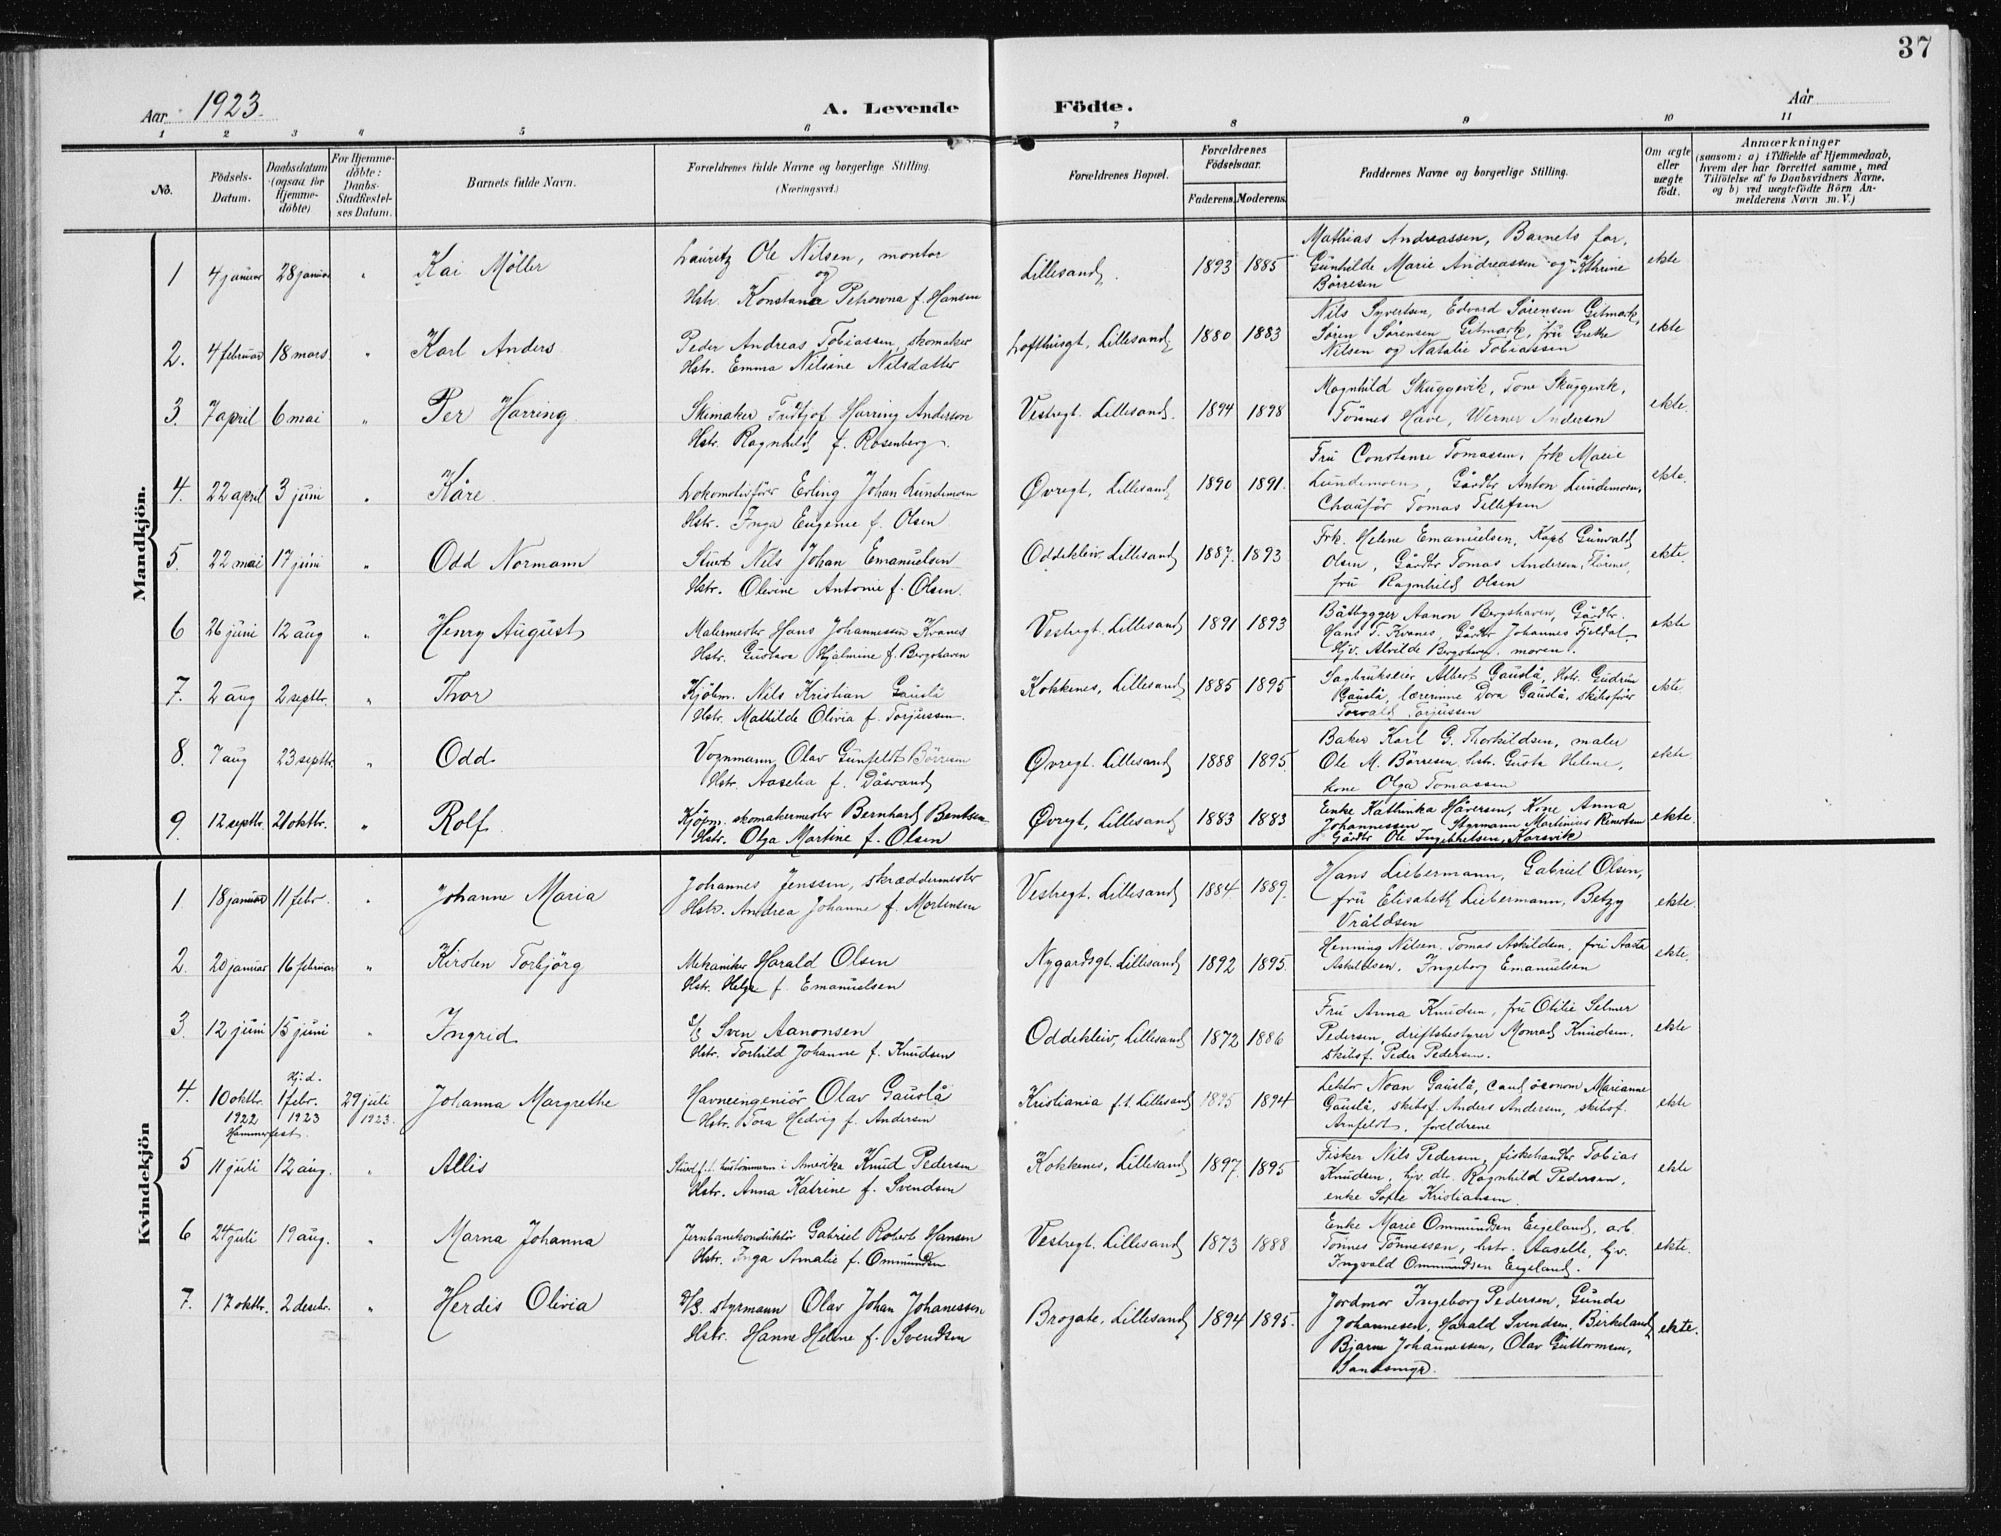 37
Aar 1923.
A. Levende Födte.
Aar
1 2 3 4 5 6 7 8 9 10 11
No.
Födsels-
Datum.
Daabsdatum
(ogsaa for
Hjemme-
döbte)
For Hjemme-
döbte:
Daabs-
Stadfæstel-
ses Datum.
Barnets fulde Navn.
Forældrenes fulde Navne og borgerlige Stilling.
(Næringsvei.)
Forældrenes Bopæl.
Forældrenes
Födselsaar.
Faderens. Moderens.
Faddernes Navne og borgerlige Stilling.
Om ægte
eller
uægte
födt.
Anmærkninger
(saasom: a) i Tilfælde af Hjemmedaab,
hvem der har forrettet samme, med
Tilföielse af to Daabsvidners Navne,
og b) ved uægtefödte Börn An-
melderens Navn m. V.)
Mandkjön.
1 4 januar 28 januar " Kai Möller
Lauritz Ole Nilsen, montør
og
Hstr. Konstance Petrowna f. Hansen
Lillesand. 1893 1885
Mathias Andreassen, Barnets far,
Gunhilde Marie Andreassen og Kthrine
Börresen
ekte
2. 4 februar 18 mars " Karl Anders
Peder Andreas Tobiassen, skomaker
Hstr. Emma Nilsine Nilsdatter
Lofthusgt, Lillesand 1880 1883
Nils Syvertsen, Edvard Sørensen Gitmark,
Søren Sørensen Gitmark, fru Grethe
Nilsen og Natalie Tobiassen
ekte
3. 7 april 6 mai " Per Harring
Skimaker Fridtjof Harring Anderson
Hstr. Ragnhild f. Rosenberg.
Vestregt. Lillesand. 1894 1898
Magnhild Skuggevik, Tone Skuggevik,
Tönnes Have, Werner Anderson
ekte.
4. 22 april 3 juni " Kåre
Lokomotivfører Erling Johan Lundemoen
Hstr. Inga Eugenie f. Olsen
Øvregt, Lillesand 1890 1891.
Fru Constanse Tomassen, frk Marie
Lundemoen, Gårdbr Anton Lundemoen,
Chauför Tomas Tellefsen
ekte.
5. 22 mai 17 juni " Odd Normann
Stuert Nils Johan Emanuelsen
Hstr. Olivine Antonie f. Olsen.
Oddekleiv. Lillesand 1887. 1893
Frk. Helene Emanuelsen, Kapt Gunvald
Olsen, Gårdbr Tomas Andersen,
fru Ragnhild Olsen
ekte.
6 26 juni 12 aug " Henry August
Malermester Hans Johannessen Kvanes
Hstr. Gustava Hjalmine f. Bergshaven
Vestregt. Lillesand 1891 1893
Båtbygger Aanon Bergshaven, Gårdbr.
Hans T. Kvanes, Gårdbr Johannes Fjeldal
Hjv. Alvilde Bergshaven. moren.
ekte
7. 2 aug 2 septbr. " Thor
Kjöbm. Nils Kristian Gauslå
Hstr. Mathilde Olivia f. Torjussen.
Kokkenes, Lillesand 1885 1895
Sagbrukseier Albert Gauslå, Hstr. Gudrun
Gauslå, lærerinne Dora Gauslå, skibsförer
Torvald Torjussen
ekte.
8. 7 aug 23 septbr. " Odd
Vognmann Olav Gunfeldt Börresen
Hstr. Aaselia f. Dåsvand
Øvregt. Lillesand 1888 1895.
Baker Karl G. Thorkildsen, maler
Ole M. Börresen, hstr. Gusta Helene,
kone Olga Tomassen
ekte.
9. 12 septbr. 21 oktbr. " Rolf
Kjöbm. skomakermester Bernhard Bentsen
Hstr. Olga Martine f. Olsen
Øvregt, Lillesand 1883 1883
Enke Kathinka Håversen, Kone Anna
Johannessen Styrmann Martinius Reinertsen
Gårdbr Ole Ingebretsen, Korsvik
ekte.
Kvindekjön
1 18 januar 11 febr. " Johanne Maria
Johannes Jenssen, skræddermester
Hstr. Andrea Johanne f. Mortensen
Vestregt. Lillesand 1884. 1889.
Hans Liebermann, Gabriel Olsen,
fru Elisabeth Liebermann, Betzy
Vråldsen
ekte.
2. 20 januar 16 februar " Kirsten Torbjörg
Mekaniker Harald Olsen
Hstr. Helga f. Emanuelsen
Nygardsgt. Lillesand 1892 1895.
Henning Nilsen. Tomas Askildsen, fru Aasta
Askildsen, Ingeborg Emanuelsen
ekte.
3. 12 juni 15 juni " Ingrid
Sven Aanonsen
Hstr. Torhild Johanne f. Knudsen
Oddekleiv, Lillesand 1872 1886
Fru Anna Knudsen, fru Otilie Selmer
Pedersen, driftsbestyrer Monrad Knudsen.
skibsf. Peder Pedersen.
ekte
4. 10 oktbr. 1922 Hammerfest. Hj.d. 1 febr. 1923 29 juli 1923. Johanna Margrethe
Havneengeniör Olav Gauslå
Hstr. Tora Hedvig f. Andersen
Kristiania f.t. Lillesand 1895 1894
Lektor Noan Gauslå, cand öconom Marianne
Gauslå, skibsf. Anders Andersen, skibsf.
Arnfeldt, foreldrene
ekte
5 11 juli 12 aug. " Allis
Stuert f.t. i Amerika Knud Pedersen
Hstr. Anna Katrine f. Svendsen
Kokkenes, Lillesand 1897. 1895
Fisker Nils Pedersen, fiskehandler Tobias
Knudsen, hjv. dtr. Ragnhild Pedersen,
enke Sofie Kristiansen
ekte
6 24 juli 19 aug. " Marna Johanna
Jernbanekonduktör Gabriel Robert Hansen
Hstr. Inga Amalie f. Ommundsen
Vestregt. Lillesand 1873 1888
Enke Marie Ommundsen Eigeland, arb.
Tönnes Tönnessen, hstr. Aaselle, hjv.
Ingvald Ommundsen Eigeland.
ekte.
7. 17 oktbr. 2 desebr. " Herdis Olivia
styrmann Olav Johan Johanessen
Hstr. Hanne Helene f. Svendsen
Brogate, Lillesand 1894 1895.
Jordmor Ingeborg Pedersen, Gunda
Johannesen, Harald Svendsen, Birkeland
Bjarne Johannessen, Olav Guttormsen,
Sandsmyr.
ekte.